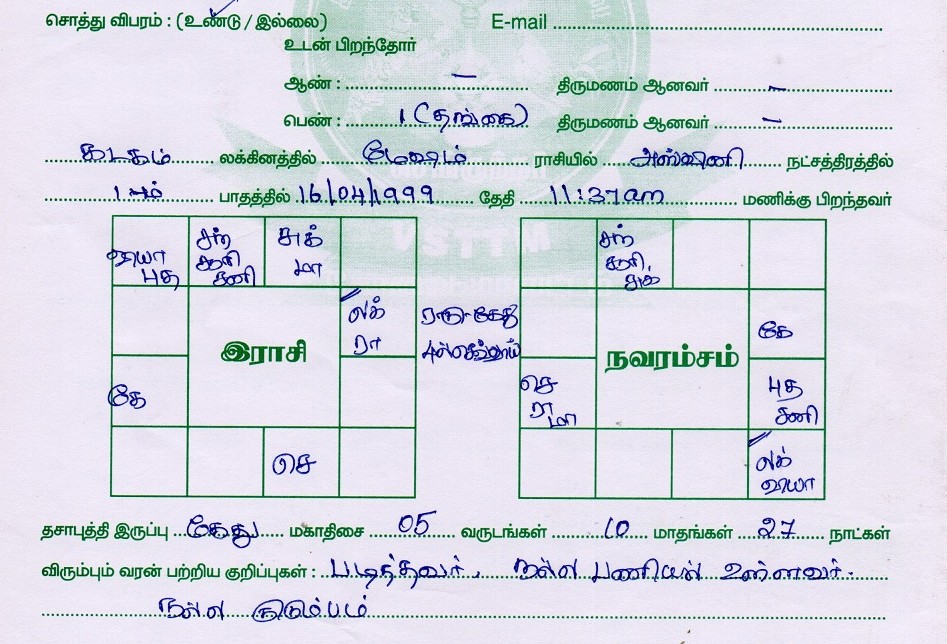 சொத்து விபரம் : (உண்டு / இல்லை) E-mail
உடன் பிறந்தோர்
ஆண் : — திருமணம் ஆனவர் —
பெண் : 1 (தங்கை) திருமணம் ஆனவர் —
கடகம் லக்கினத்தில் மேஷம் ராசியில் அஸ்வினி நட்சத்திரத்தில்
1ம் பாதத்தில் 16/04/1999 தேதி 11:37am மணிக்கு பிறந்தவர்
வியா புத
சந் சூரி சனி
சுக் மா
லக் ரா
இராசி
கே
செ
ராகு-கேது
செவ்வாய்
சந் சூரி சுக்
கே
நவரம்சம்
செ ரா மா
புத சனி
லக் வியா
VSTTM
தசாபுத்தி இருப்பு கேது மகாதிசை 05 வருடங்கள் 10 மாதங்கள் 27 நாட்கள்
விரும்பும் வரன் பற்றிய குறிப்புகள் : படித்தவர், நல்ல பணியில் உள்ளவர்.
நல்ல குடும்பம்